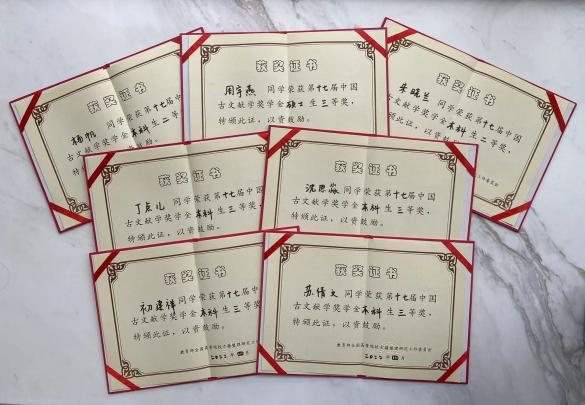 获奖证书
杨帆 同学荣获第十七届中国
古文献学奖学金本科生二等奖,
特颁此证,以资鼓励。
获奖证书
周宇燕 同学荣获第十七届中国
古文献学奖学金硕士生三等奖,
特颁此证,以资鼓励。
获奖证书
晓兰 同学荣获第十七届中国
古文献学奖学金本科生二等奖,
特颁此证,以资鼓励。
获奖证书
丁点儿 同学荣获第十七届中国
古文献学奖学金本科生三等奖,
特颁此证,以资鼓励。
获奖证书
沈思 同学荣获第十七届中国
古文献学奖学金本科生三等奖,
特颁此证,以资鼓励。
获奖证书
初建祥 同学荣获第十七届中国
古文献学奖学金本科生三等奖,
特颁此证,以资鼓励。
教育部全国高等院校古籍整理研究工
2022年四月
获奖证书
苏倩文 同学荣获第十七届中国
古文献学奖学金本科生三等奖,
特颁此证,以资鼓励。
教育部全国高等院校古籍整理研究工作委员会
2022年四月